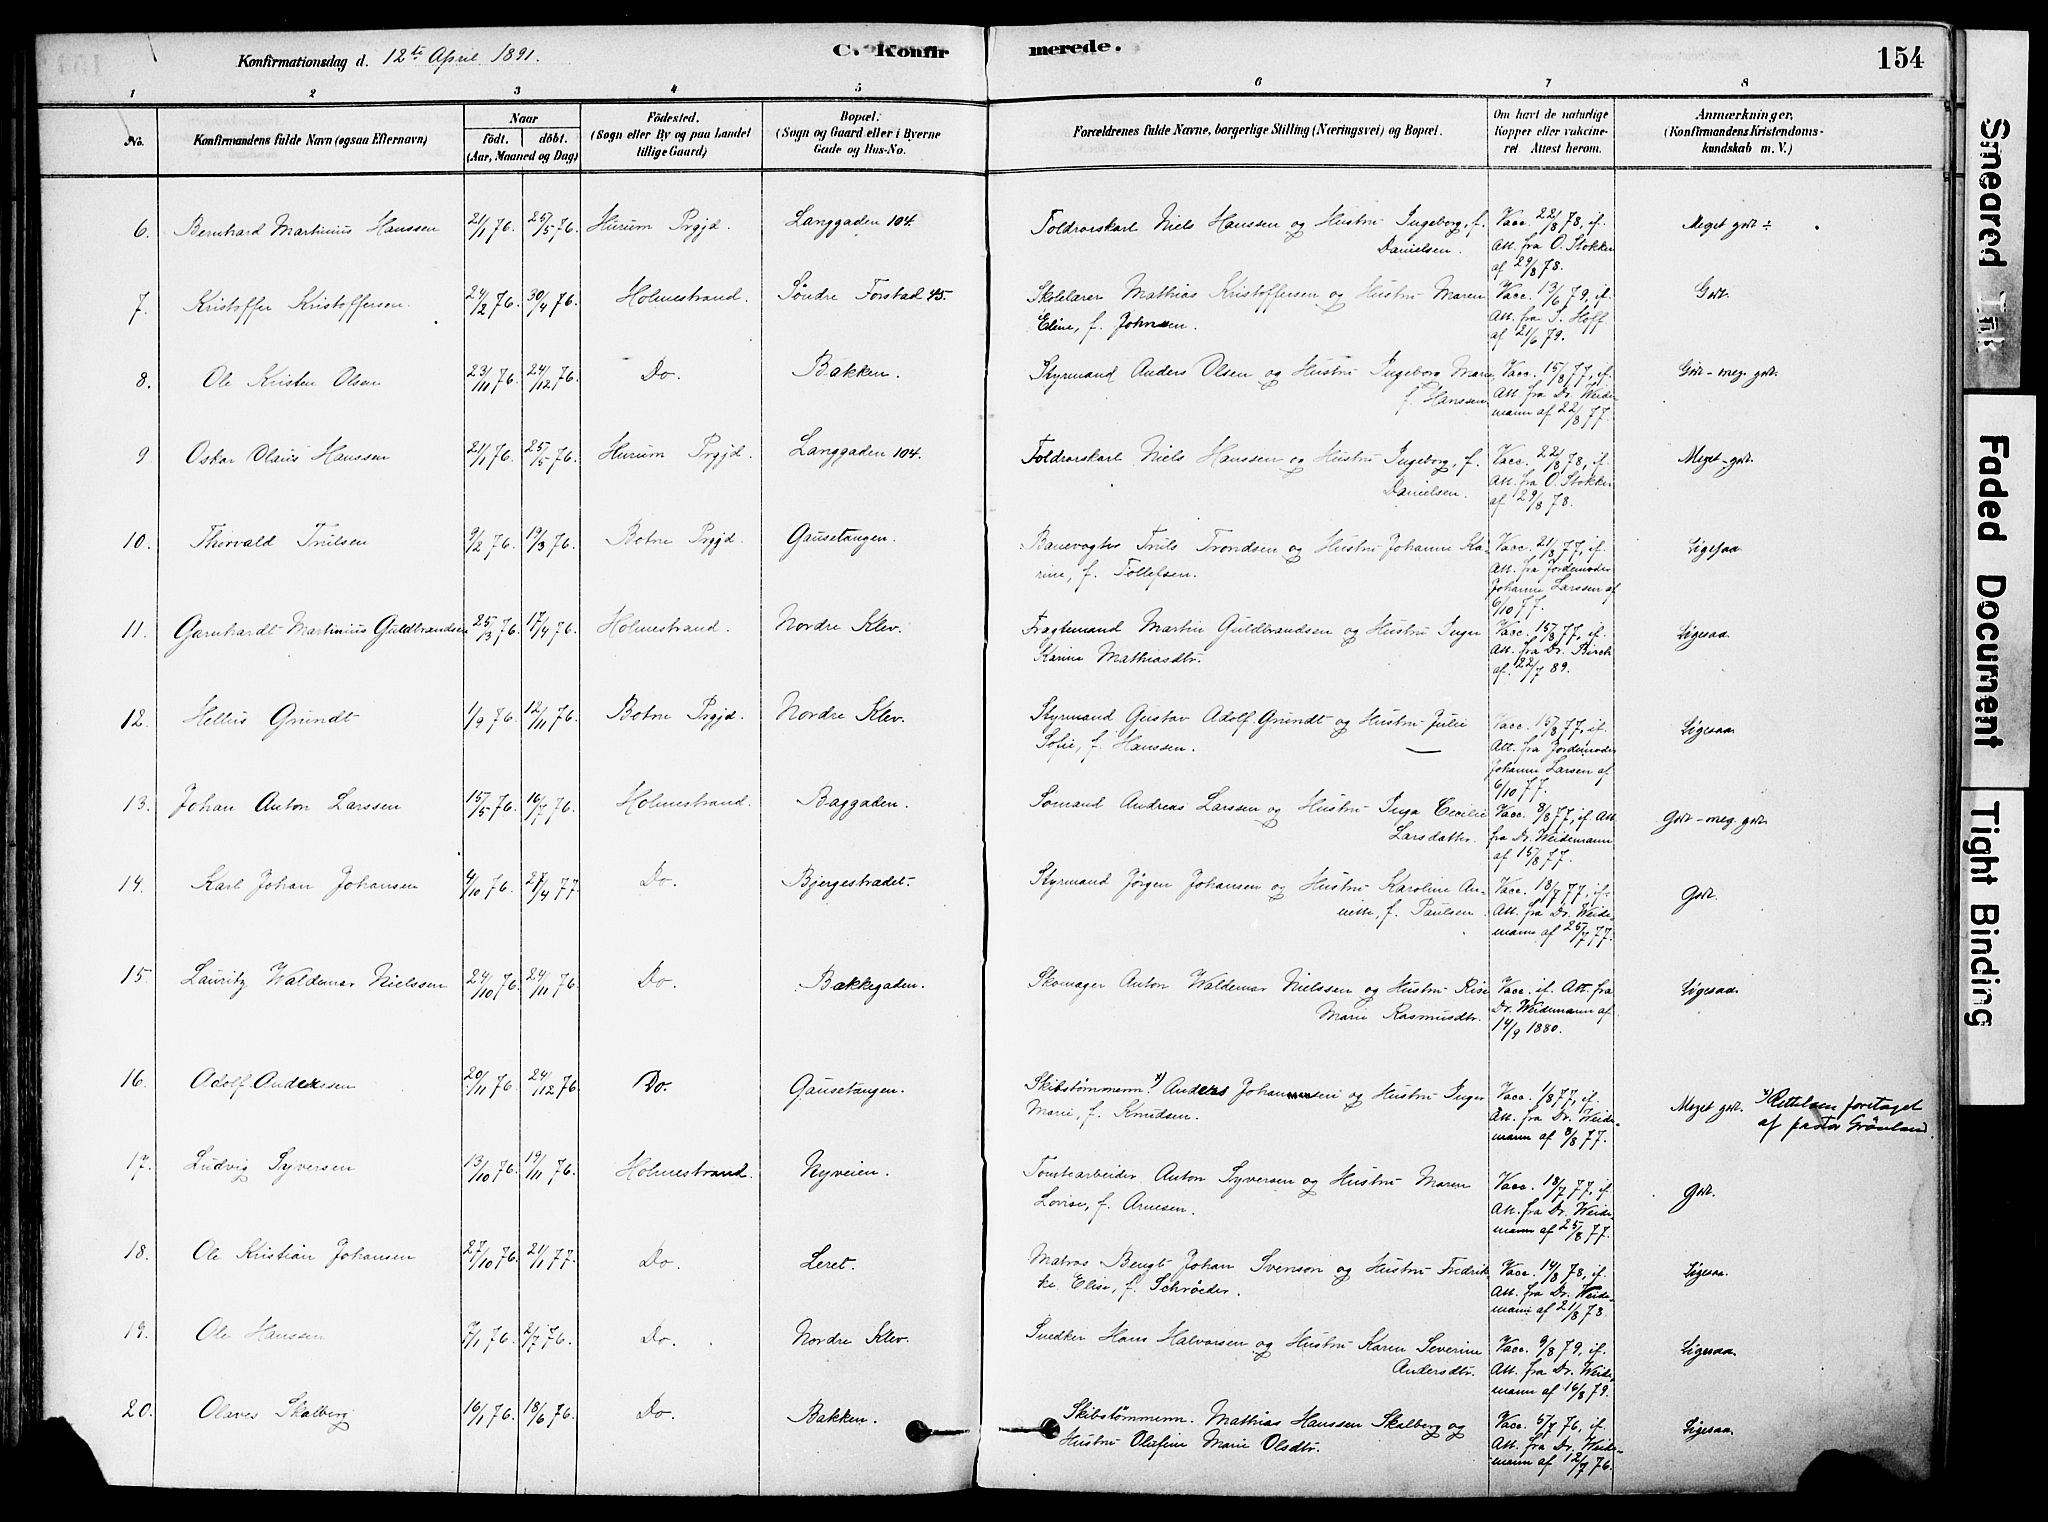 Konfirmationsdag d. 12te April 1891.
C. Konfirmerede.
154
1 2 3 4 5 6 7 8
No.
Konfirmandens fulde Navn (ogsaa Efternavn)
Naar
født. døbt.
(Aar, Maaned og Dag)
Fødested.
(Sogn eller By og paa Landet
tillige Gaard)
Bopæl.
(Sogn og Gaard eller i Byerne
Gade og Hus-No.
Forældrenes fulde Navne, borgerlige Stilling (Næringsvei) og Bopæl.
Om havt de naturlige
Kopper eller vakcine-
ret. Attest herom.
Anmærkninger.
(Konfirmandens Kristendoms-
kundskab m. V.)
6. Bernhard Martinius Hanssen 21/1 76. 25/5 76. Hurum Prgjd. Langgaden 104. Toldrorskarl Niels Hanssen og Hustru Ingeborg, f. Vacc. 22/8 78, if. Meget godt ÷
Danielsen. Att. fra O. Stokker
af 29/8 78.
7. Kristoffer Kristoffersen 24/2 76. 30/4 76. Holmestrand. Søndre Forstad 45. Skolelærer Mathias Kristoffersen og Hustru Maren Vacc. 13/6 79, if. Godt.
Eline, f. Johnsen. Att. fra S. Hoff
af 21/6 79.
8. Ole Kristen Olsen 23/11 76. 24/12 76. Do. Bakken. Styrmand Anders Olsen og Hustru Ingeborg Marie, Vacc. 15/8 77, if. Godt - meg. godt.
f. Hanssen. Att. fra Dr. Weide-
mann af 22/8 77.
9. Oskar Olaus Hanssen 21/1 76. 25/5 76. Hurum Prgjd. Langgaden 104. Toldrorskarl Niels Hanssen og Hustru Ingeborg, f. Vacc. 22/8 78, if. Meget godt.
Danielsen. Att. fra O. Stokker
af 29/8 78.
10. Thorvald Trulsen 9/2 76. 19/3 76. Botne Prgjd. Gausetangen. Banevogter Truls Trondsen og Hustru Johanne Ka- Vacc. 21/8 77, if. Ligesaa
rine, f. Tollefsen. Att. fra Jordemoder
Johanne Larssen af
6/10 77.
11. Garnhardt Martinius Guldbrandsen 25/3 76. 17/4 76. Holmestrand. Nordre Klev. Fragtemand Martin Guldbrandsen og Hustru Inger Vacc. 15/8 77, if. Ligesaa.
Karine Mathiasdtr. Att. fra Dr. Birch
af 22/7 89.
12. Hellius Grundt 1/9 76. 12/11 76. Botne Prgjd. Nordre Klev. Styrmand Gustav Adolf Grundt og Hustru Julie Vacc. 15/8 77, if. Ligesaa.
Sofie, f. Hanssen. Att. fra Jordemoder
Johanne Larsen af
6/10 77.
13. Johan Anton Larssen 15/5 76. 16/7 76. Holmestrand. Baggaden. Sømand Andreas Larssen og Hustru Inga Cecilie Vacc. 8/8 77, if. Att. Godt - meg. godt.
Larsdatter. fra Dr. Weidemann
af 15/8 77.
14. Karl Johan Johansen 4/10 76. 27/4 77. Do. Bjergestrædet. Styrmand Jørgen Johansen og Hustru Karoline An- Vacc. 18/7 77, if. Godt.
nette, f. Paulsen. Att. fra Dr. Weide-
mann af 25/7 77.
15. Lauritz Waldemar Nielssen 24/10 76. 24/11 76. Do. Bækkegaden. Skomager Anton Waldemar Nielssen og Hustru Rise Vacc. if. Att. fra Ligesaa.
Marie Rasmusdtr. Dr. Weidemann af
14/9 1880.
16. Adolf Anderssen 20/11 76. 24/12 76. Do. Gausetangen. Skibstømmerm. x) Anders Johannesen og Hustru Inger Vacc. 1/8 77, if. Meget godt. x) Rettelsen foretaget
Marie, f. Knudsen. Att. fra Dr. Weide- af pastor Grønland.
mann af 8/8 77.
17. Ludvig Syversen 13/10 76. 19/11 76. Holmestrand. Nyveien. Tomtearbeider Anton Syversen og Hustru Maren Vacc. 18/7 77, if. Godt.
Lovise, f. Arnesen. Att. fra Dr. Weide-
mann af 25/8 77.
18. Ole Kristian Johansen 27/10 76. 21/1 77. Do. Leret. Matros Bengt Johan Svenson og Hustru Fredrik- Vacc. 14/8 78, if. Ligesaa.
ke Elise, f. Schrøeder. Att. fra Dr. Weide-
mann af 21/8 78.
19. Ole Hanssen 7/1 76. 2/7 76. Do. Nordre Klev. Snedker Hans Halvorsen og Hustru Karen Severine Vacc. 9/8 79, if. Ligesaa.
Andersdtr. Att. fra Dr. Weide-
mann af 16/8 79.
20. Olaves Skalberg 16/1 76. 18/6 76. Do. Bakken. Skibstømmerm. Mathias Hanssen Skalberg og Vacc. 5/7 76, if. Ligesaa.
Hustru Olafine Marie Olsdtr. Att. fra Dr. Weide-
mann af 12/7 76.
Smeared Ink
Faded Document
Tight Binding